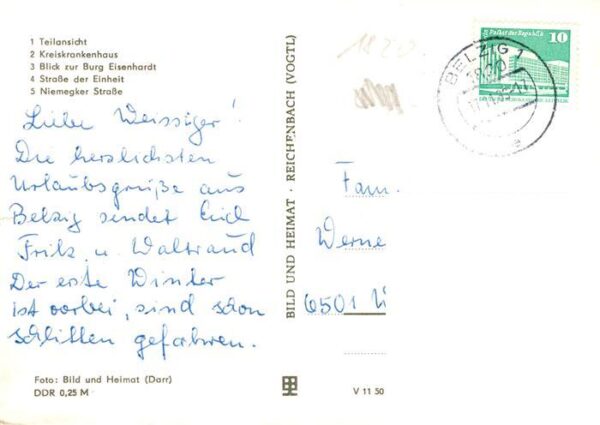 1 Teilansicht
2 Kreiskrankenhaus
3 Blick zur Burg Eisenhardt
4 Straße der Einheit
5 Niemegker Straße
Liebe Weissiger!
Die herzlichsten
Urlaubsgrüße aus
Belzig sendet Euch
Fritz u. Waltraud
Der erste Winter
ist vorbei, sind schon
Schlitten gefahren.
Foto: Bild und Heimat (Darr)
DDR 0,25 M
BILD UND HEIMAT · REICHENBACH (VOGTL)
V 11 50
Palast der Republik
10
BELZIG 1
Fam.
Werne
6501